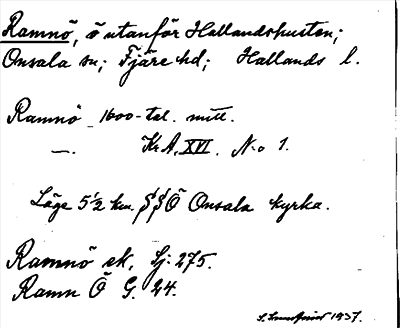 Ramnö, ö utanför Hallandskusten;
Onsala sn; Fjäre hd; Hallands l.
Ramnö 1600-tal. mitt.
—. KrA. XVI. No 1.
Läge 5½ km. S S Ö Onsala kyrka.
Ramnö ek, Sj: 275.
Ramn Ö G. 24.
1937.